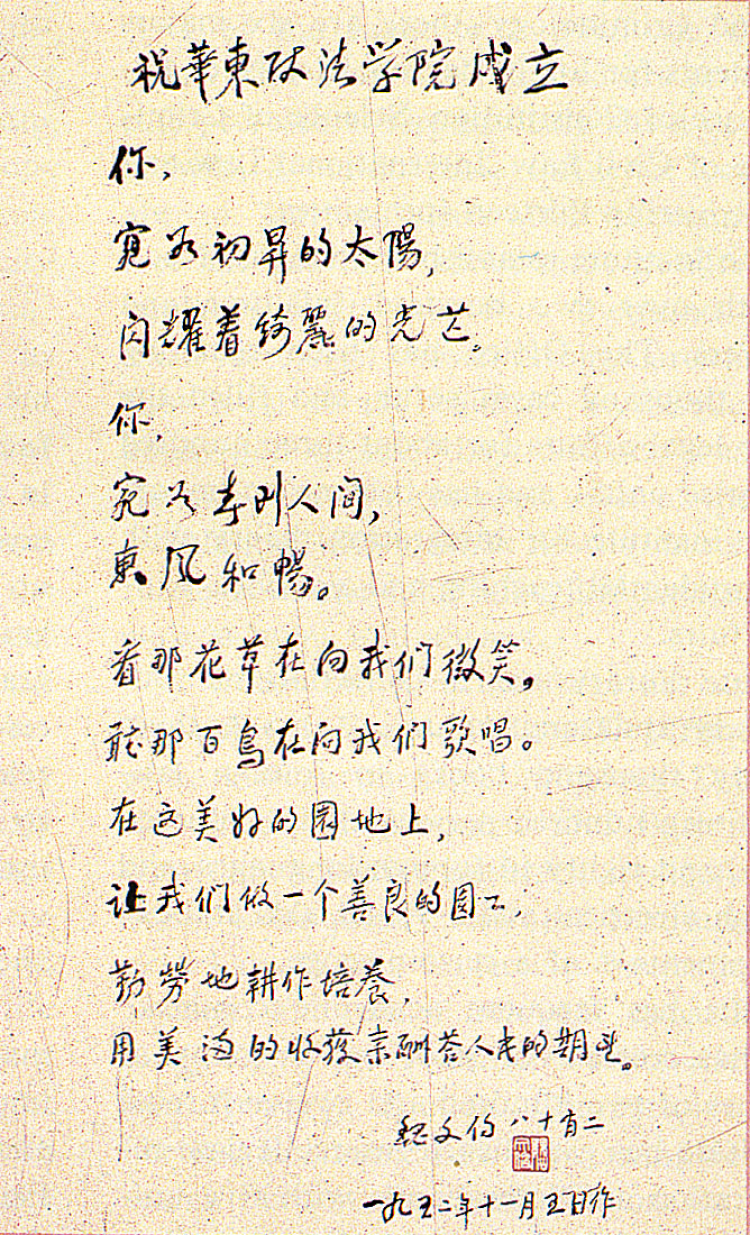 祝華東政法学院成立
你,
宛若初昇的太陽,
闪耀着綺麗的光芒。
你,
宛若春到人间,
東风和暢。
看那花草在向我们微笑,
聴那百鳥在向我们歌唱。
在这美好的園地上,
让我们做一个善良的园工,
勤劳地耕作培養,
用美满的收获来酬答人民的期望。
魏文伯八十有二
一九五二年十一月五日作